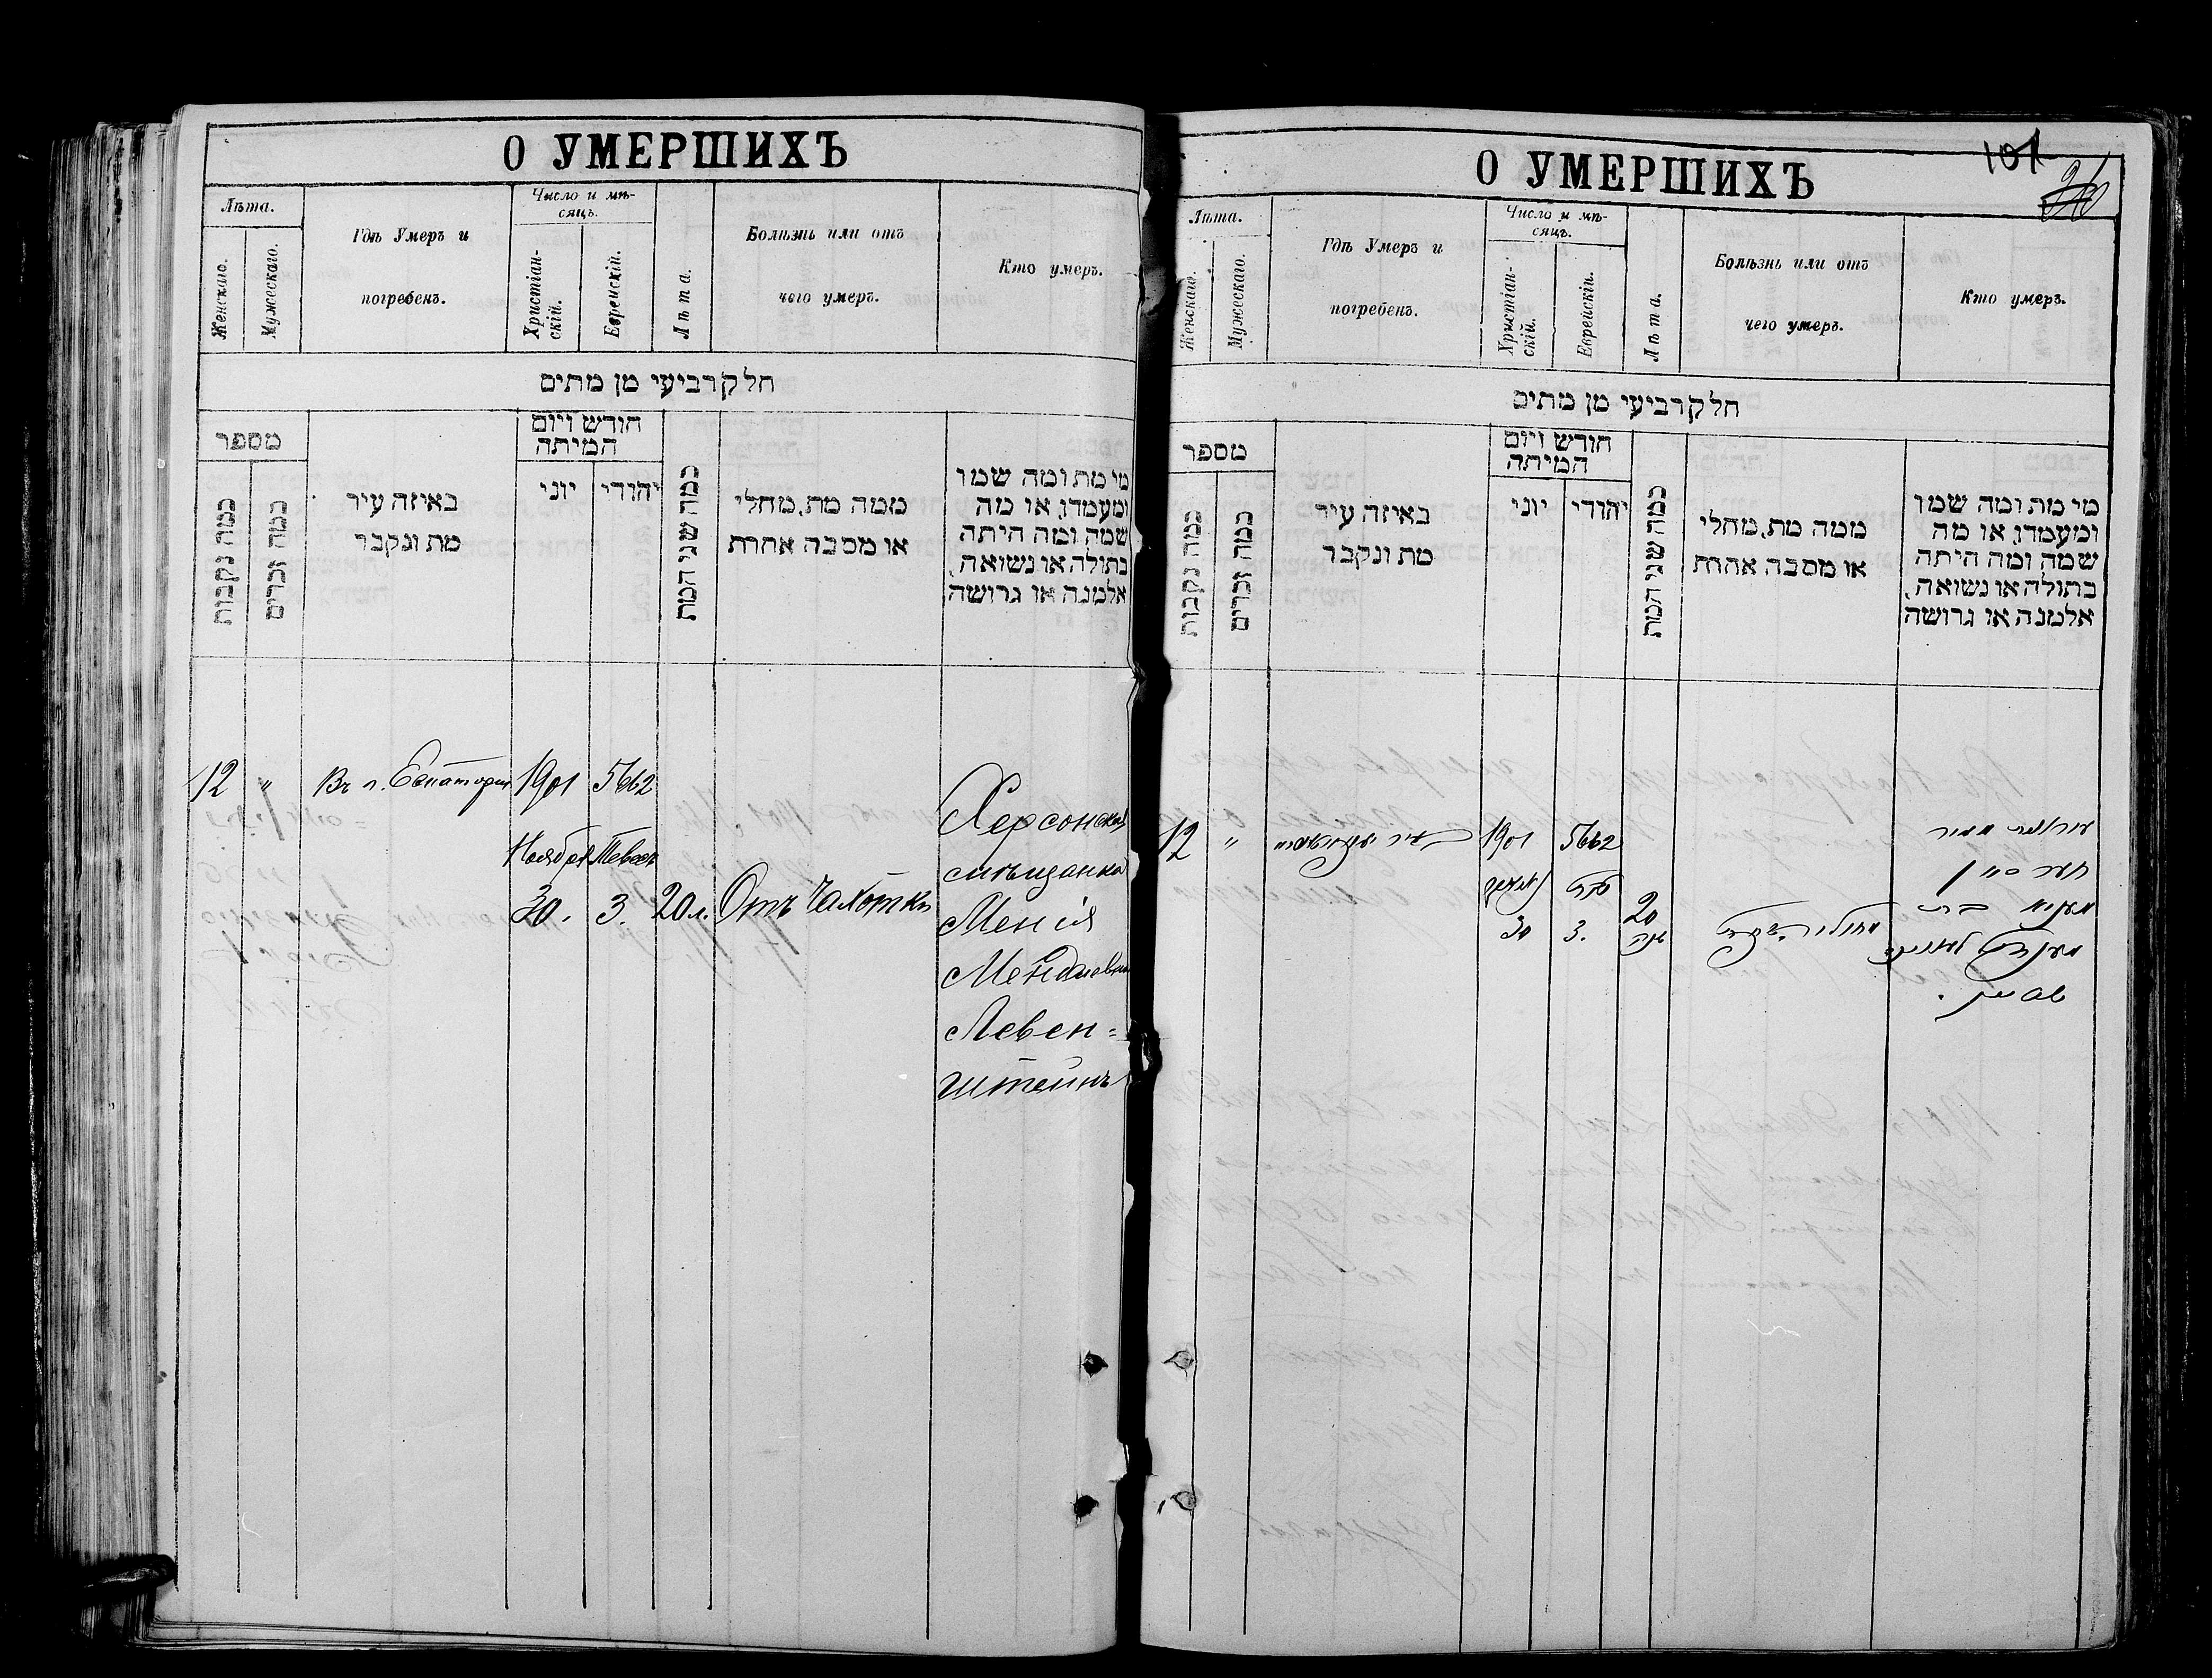 О УМЕРШИХЪ
Лѣта.
Женскаго.
Мужескаго.
Гдѣ Умеръ и
погребенъ.
Число и мѣ-
сяцъ.
Христіан-
скій.
Еврейскій.
Лѣта.
Болѣзнь или отъ
чего умеръ.
Кто умеръ.
חלק רביעי מן מתים
מספר
כמה נקבות
כמה זכרים
באיזה עיר
מת ונקבר
חודש ויום
המיתה
יוני
יהודי
כמה שני המת
ממה מת, מחלי
או מסבה אחרת
מי מת ומה שמו
ומעמדו, או מה
שמה ומה היתה
בתולה או נשואה,
אלמנה או גרושה
12 " Въ г. Евпатории 1901 5662
Ноября Тевесъ
30. 3. 20 л. Отъ Чахотки
Херсонская
мѣщанка
Менія
Менделевна
Левен=
штейнъ
О УМЕРШИХЪ
101
Лѣта.
Женскаго.
Мужескаго.
Гдѣ Умеръ и
погребенъ.
Число и мѣ-
сяцъ.
Христіан-
скій.
Еврейскій.
Лѣта.
Болѣзнь или отъ
чего умеръ.
Кто умеръ.
חלק רביעי מן מתים
מספר
כמה נקבות
כמה זכרים
באיזה עיר
מת ונקבר
חודש ויום
המיתה
יוני
יהודי
כמה שני המת
ממה מת, מחלי
או מסבה אחרת
מי מת ומה שמו
ומעמדו, או מה
שמה ומה היתה
בתולה או נשואה,
אלמנה או גרושה
12 " 1901 5662
טבת
30 3. 20